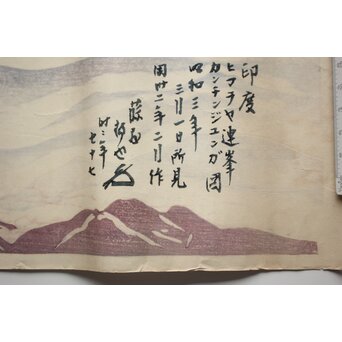 印度
ヒマラヤ連峯
カンチンジエンガ図
昭和三年
三月一日所見
同廿二年二月作
時三年
七十七